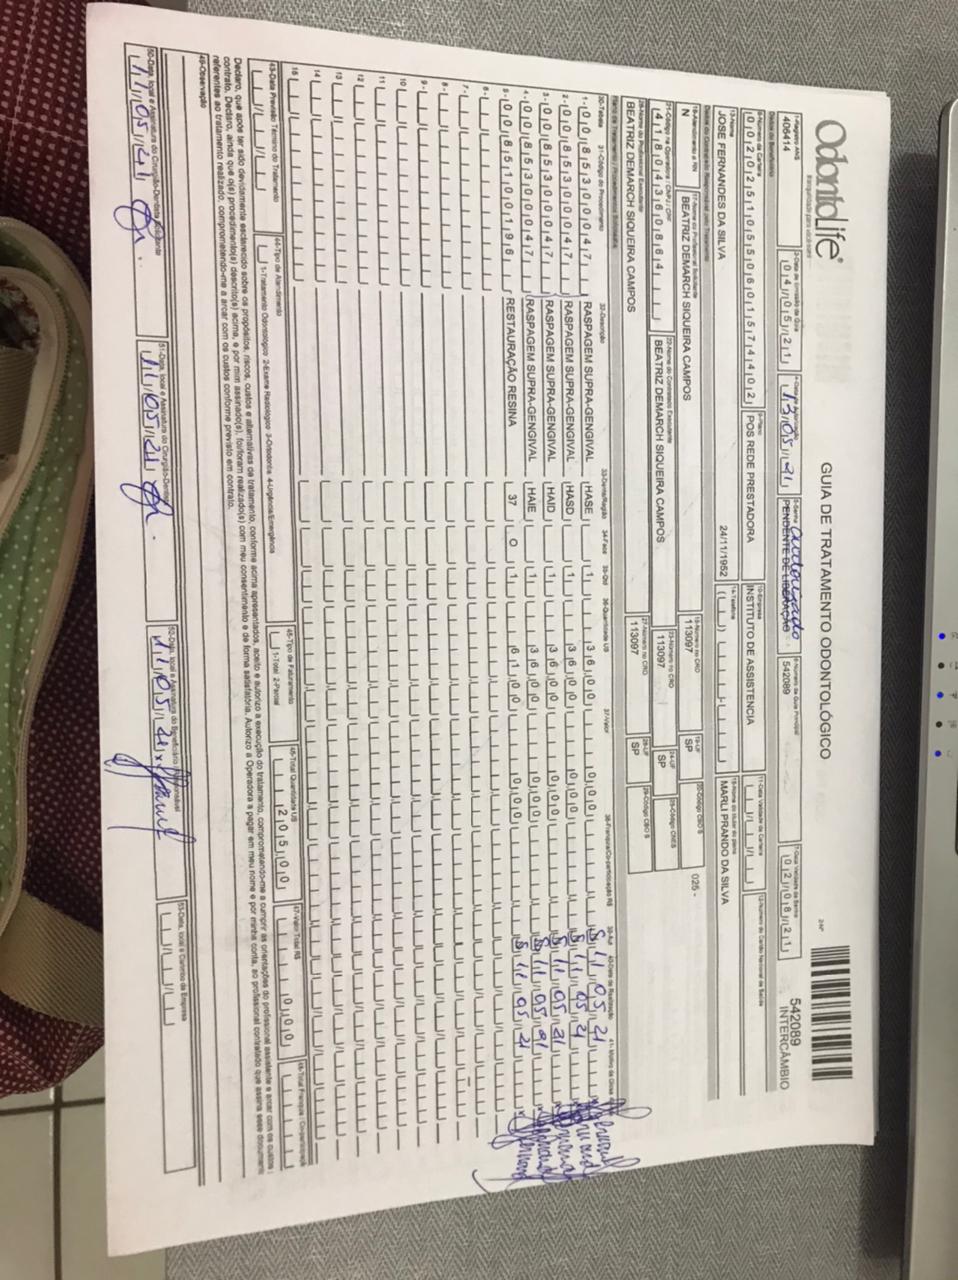 OdontoLife®
GUIA DE TRATAMENTO ODONTOLÓGICO
542089
INTERCÂMBIO
1-Registro ANS
406414
04/05/21
13/05/21
autorizado
PENDENTE DE LIBERAÇÃO
542089
02/08/21
Dados do Beneficiário
8-Número da Carteira
00202510550601574402
9-Plano
POS REDE PRESTADORA
10-Empresa
INSTITUTO DE ASSISTENCIA
11-Data Validade da Carteira
12-Número do Cartão Nacional de Saúde
13-Nome
JOSE FERNANDES DA SILVA
24/11/1952
14-Telefone
MARLI PRANDO DA SILVA
16-Atendimento a RN
N
17-Nome do Profissional Solicitante
BEATRIZ DEMARCH SIQUEIRA CAMPOS
18-Número no CRO
113097
19-UF
SP
025 -
21-Código na Operadora / CNPJ / CPF
41804360864
22-Nome do Contratado Executante
BEATRIZ DEMARCH SIQUEIRA CAMPOS
23-Número no CRO
113097
24-UF
SP
25-Código CNES
26-Nome do Profissional Executante
BEATRIZ DEMARCH SIQUEIRA CAMPOS
27-Número no CRO
113097
28-UF
SP
29-Código CBO S
30-Tabela 31-Código do Procedimento 32-Descrição 33-Dente/Região 34-Face 35-Qtd 36-Quantidade US 37-Valor 38-Franquia/Co-participação R$ 39-Aut 40-Data de Realização
1- 00 85300047 RASPAGEM SUPRA-GENGIVAL HASE 1 36,00 0,00 S 11/05/21
2- 00 85300047 RASPAGEM SUPRA-GENGIVAL HASD 1 36,00 0,00 S 11/05/21
3- 00 85300047 RASPAGEM SUPRA-GENGIVAL HAID 1 36,00 0,00 S 11/05/21
4- 00 85300047 RASPAGEM SUPRA-GENGIVAL HAIE 1 36,00 0,00 S 11/05/21
5- 00 85100196 RESTAURAÇÃO RESINA 37 O 1 61,00 0,00 S 11/05/21
6-
7-
8-
9-
10
11
12
13
14
15
43-Data Previsão Término do Tratamento
44-Tipo de Atendimento
1-Tratamento Odontológico 2-Exame Radiológico 3-Ortodontia 4-Urgência/Emergência
45-Tipo de Faturamento
1-Total 2-Parcial
46-Total Quantidade US
205,00
47-Valor Total R$
0,00
48-Total Franquia / Co-participação
Declaro, que após ter sido devidamente esclarecido sobre os propósitos, riscos, custos e alternativas de tratamento, conforme acima apresentados, aceito e autorizo a execução do tratamento, comprometendo-me a cumprir as orientações do profissional assistente e arcar com os custos
contrato. Declaro, ainda que o(s) procedimento(s) descrito(s) acima, e por mim assinado(s), foi/foram realizado(s) com meu consentimento e de forma satisfatória. Autorizo a Operadora a pagar em meu nome e por minha conta, ao profissional contratado que assina esse documento
referentes ao tratamento realizado, comprometendo-me a arcar com os custos conforme previsto em contrato.
49-Observação
50-Data, local e Assinatura do Cirurgião-Dentista Solicitante
11/05/21
51-Data, local e Assinatura do Cirurgião-Dentista
11/05/21
52-Data, local e Assinatura do Beneficiário / Responsável
11/05/21
53-Data, local e Carimbo da Empresa